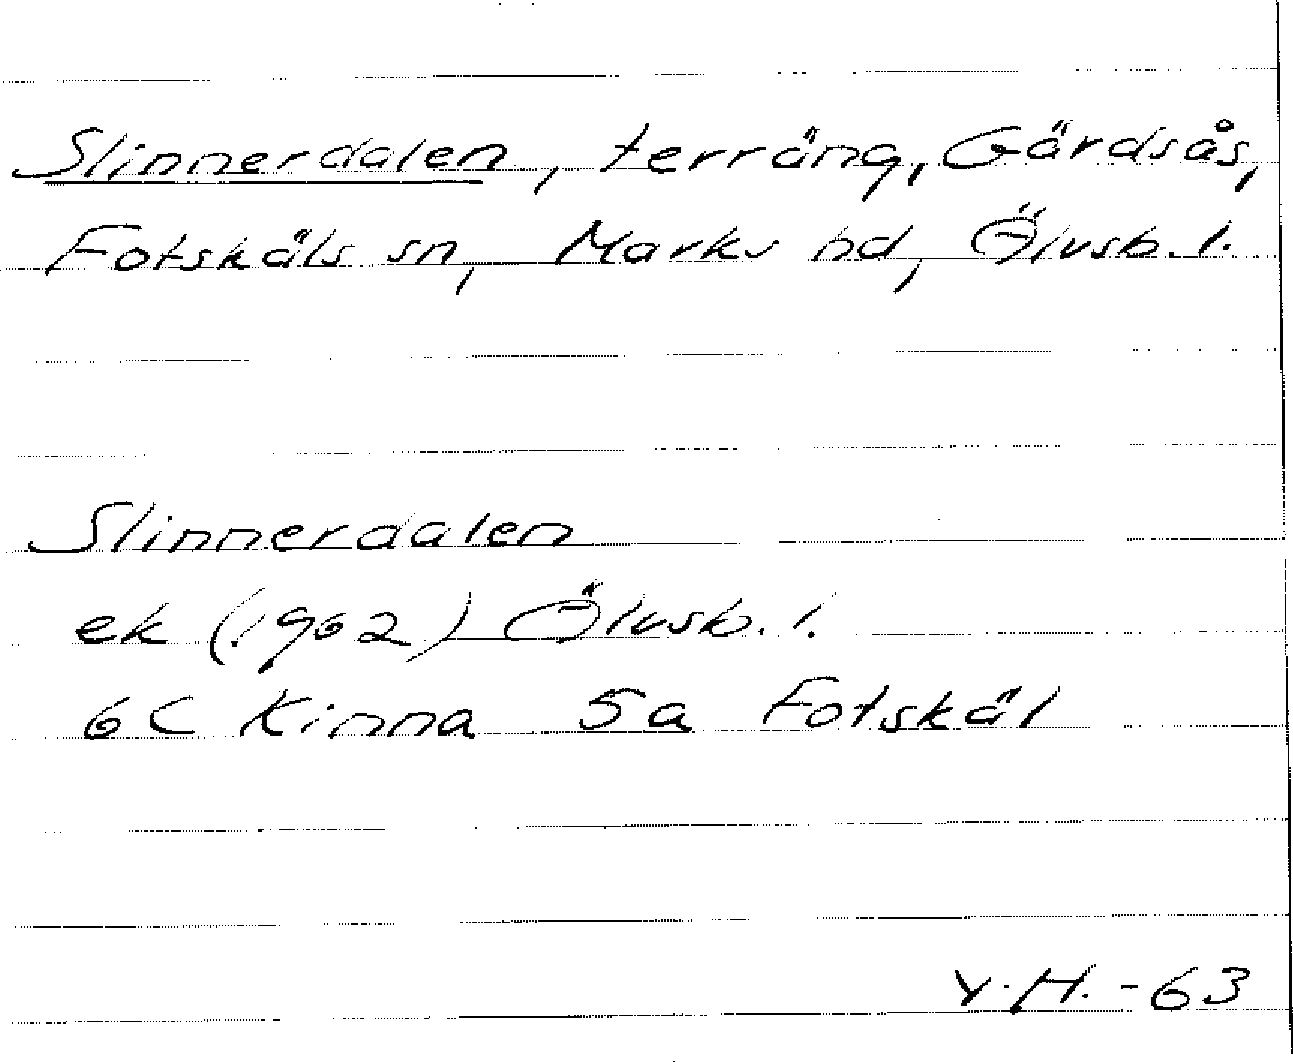 Slinnerdalen, terräng, Gärdsås,
Fotskäls sn, Marks hd, Älvsb. l.
Slinnerdalen
ek (1962) Älvsb. l.
6C Kinna 5a Fotskäl
Y.H. -63